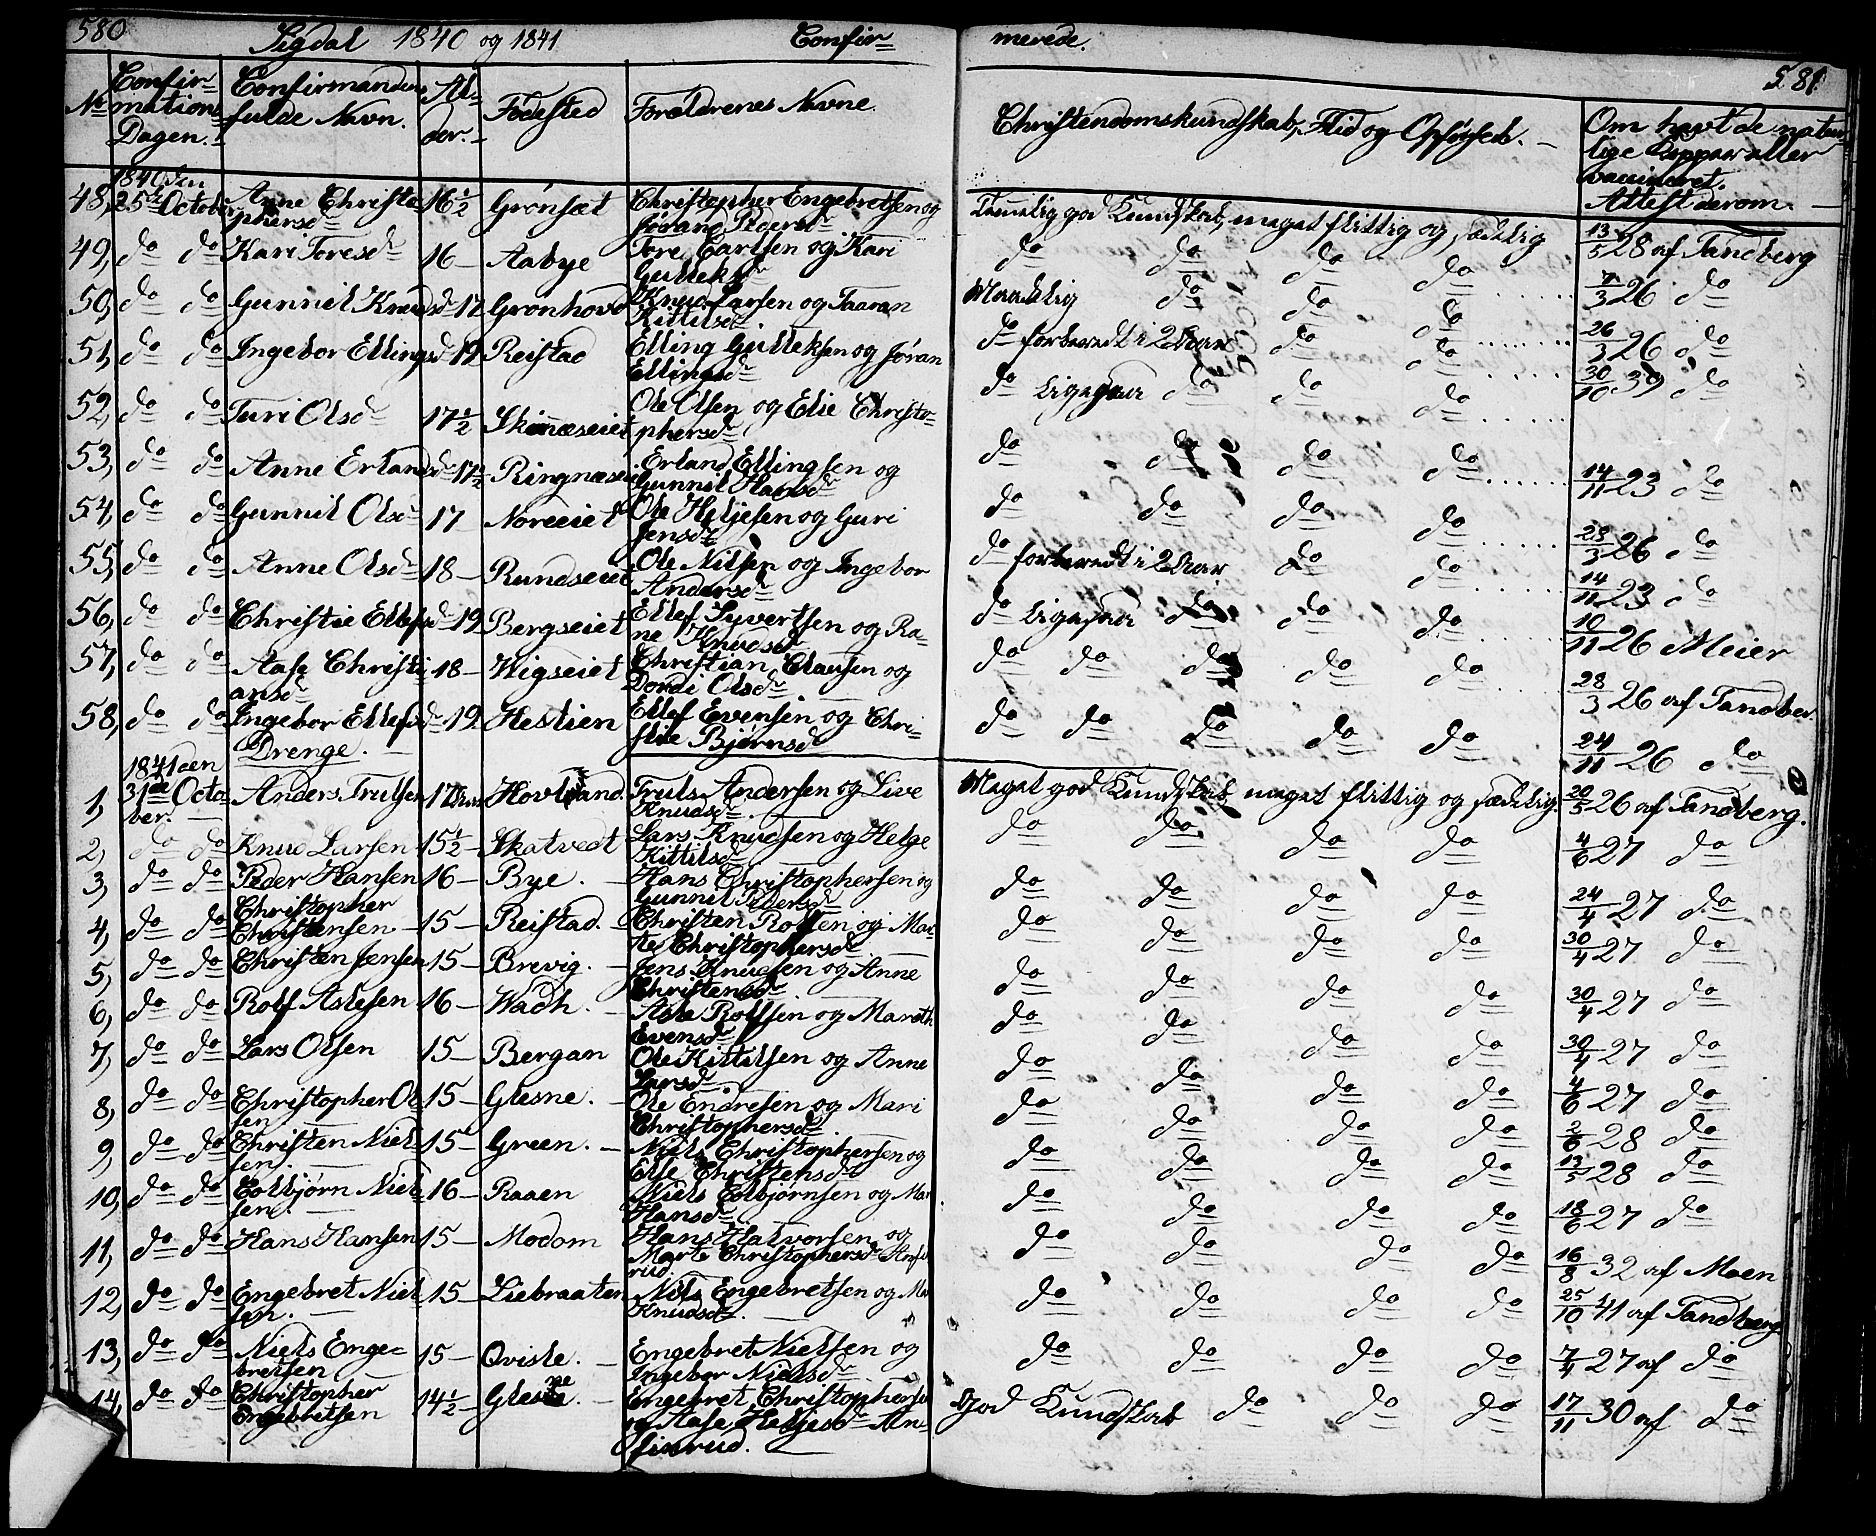 580 Sigdal 1840 og 1841 Confir= merede. 581
No Confir= mations Dagen. Confirmandens fulde Navn. Al= der. Fødested Forældrenes Navne. Christendomskundskab, Flid og Opførsel. Om havt de natur= lige Kopper eller vaccineret. Attest derom.
48, 1840 den 25de October Anne Christo phersdr 16½ Grønsæt Christopher Engebretsen og Jøran Pedersdr Temelig god Kundskab, meget flittig og sædelig 13/5 28 af Tandberg
49, do do Kari Toresdr 16 Aabye Tore Carlsen og Kari Gulleksdr do do do do 7/3 26 do
50, do do Gunnil Knudsdr 17 Grønhovd Knud Larsen og Taaran Kittilsdr Maadelig do do do 26/3 26 do
51, do do Ingebor Ellingsdr 19 Reistad Elling Gulleksen og Jøran Ellingsdr do forberedt i 2 Aar do do 30/10 39 do
52, do do Turi Olsdr 17½ Skinnæseiet Ole Olsen og Elie Christo= phersdr do Ligesaa do do do
53, do do Anne Erlandsdr 17½ Ringnæseiet Erland Ellingsen og Gunnil Hansdr do do do do 14/11 23 do
54, do do Gunnil Olsdr 17 Noreeiet Ole Helgesen og Guri Jensdr do do do do 28/3 26 do
55, do do Anne Olsdr 18 Rundseiet Ole Nilsen og Ingebor Andersdr do forberedt i 2 Aar do do 14/11 23 do
56, do do Christie Ellefsdr 19 Bergseiet Ellef Syvertsen og Ra= ne Knudsdr do Ligesaa do do do 10/11 26 Meier
57, do do Aase Christi ansdr 18 Wigseiet Christian Clausen og Dordi Olsdr do do do do do 28/3 26 af Tandber
58, do do Ingebor Ellefsdr 19 Hestien Ellef Evensen og Chri= stie Bjørnsdr do do do do do 24/11 26 do
Drenge.
1, 1841 den 31de Octo ber. Anders Trulsen 17 Aar Hovland Truls Andersen og Live Knudsdr Meget god Kundskab, meget flittig og sædelig. 20/5 26 af Tandberg.
2, do do Knud Larsen 15½ Skatvedt Lars Knudsen og Helge Kittilsdr do do do do 4/6 27 do
3, do do Peder Hansen 16 Bye. Hans Christophersen og Gunnil Pedersdr do do do do 24/4 27 do
4, do do Christopher Christensen 15 Reistad. Christen Rolfsen og Mar= te Christophersdr do do do do 30/4 27 do
5, do do Christen Jensen 15 Brevig. Jens Knudsen og Anne Christensdr do do do do 30/4 27 do
6, do do Rolf Aslesen 16 Wadh. Asle Rolfsen og Mareth Evensdr do do do do 30/4 27 do
7, do do Lars Olsen 15 Bergan Ole Kittilsen og Anne Larsdr do do do do 4/6 27 do
8, do do Christopher Ol sen 15 Glesne. Ole Endresen og Mari Christophersdr. do do do do 2/6 28 do
9, do do Christen Niel sen. 15 Green. Niels Christophersen og Else Christensdr do do do do 13/5 28 do
10, do do Eolbjørn Niel sen. 16 Raaen Niels Eolbjørnsen og Mari Hansdr do do do do 18/6 27 do
11, do do Hans Hansen 15 Modom Hans Halvorsen og Marte Christophersdr Anfin rud. do do do do 16/8 32 af Moen
12, do do Engebret Niel sen. 15 Liebraaten Niels Engebretsen og Knudsdr. do do do do 25/10 41 af Tandberg
13, do do Niels Enge= bretsen 15 Qvisle. Engebret Nielsen og Ingebor Nielsdr do do do do 7/4 27 af do
14, do do Christopher Engebretsen 14½ Glesne. Engebret Christophersen og Aase Helgesdr An= finrud. God Kundskab do do do 17/11 30 af do